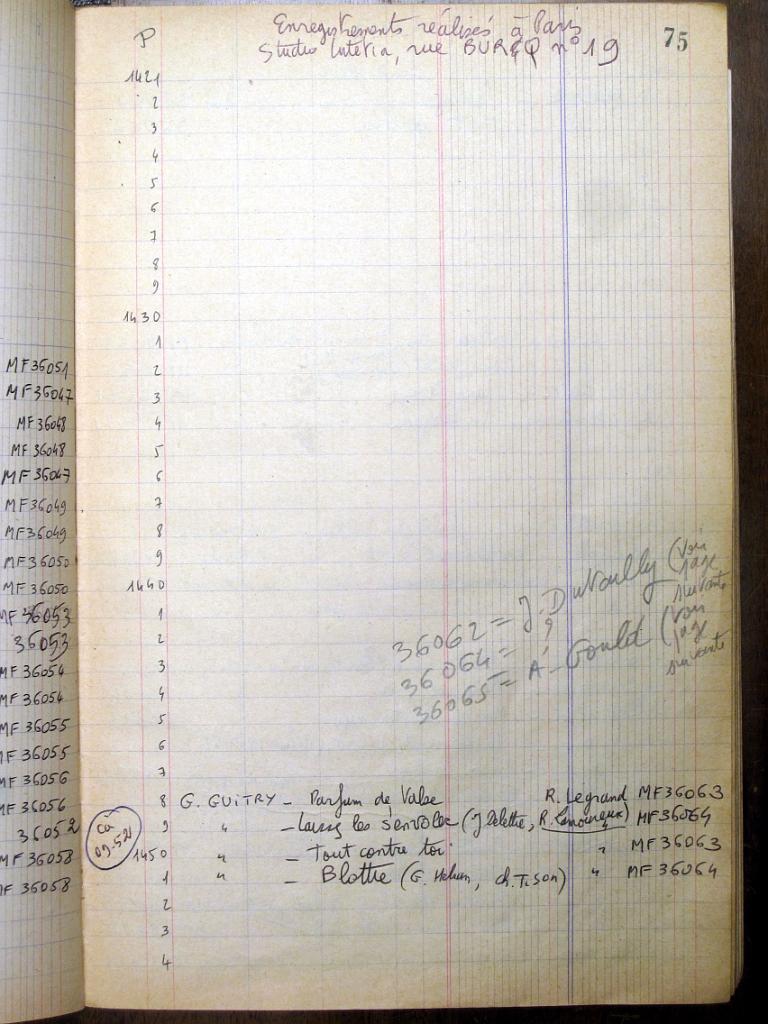 MF36051
MF36047
MF36048
MF36048
MF36047
MF36049
MF36049
MF36050
MF36050
MF36053
36053
MF36054
MF36054
MF36055
MF36055
MF36056
MF36056
36052
MF36058
MF36058
P
Enregistrements réalisés à Paris
Studio Lutetia, rue BURCQ n° 19
75
1421
2
3
4
5
6
7
8
9
1430
1
2
3
4
5
6
7
8
9
1440
1
2
3
4
5
6
7
36062 = J. (voir page suivante
36064 = ?
36065 = A. Gould (voir page suivante
8 G. GUITRY _ Parfum de Valse R. Legrand MF36063
9 " _ les (J Delettre, R. Lamoureux) MF36064
ca 09.52
1450 " _ Tout contre toi " MF36063
1 " _ Blottie (G. , ch. Tison) " MF36064
2
3
4